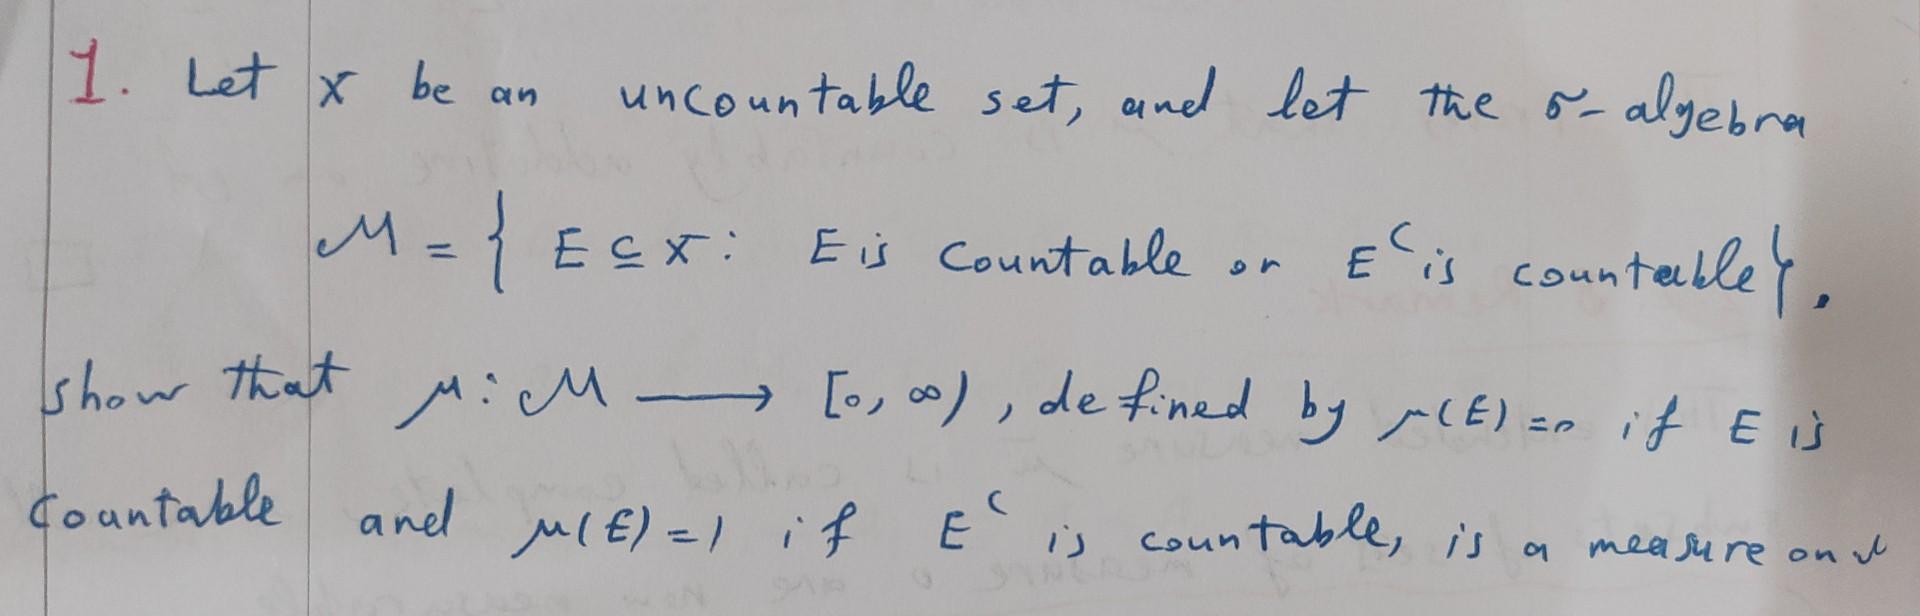 1. Let X be an uncountable set, and let the σ-algebra
M = { E ⊆ X : E is countable or E^c is countable}.
show that μ : M ⟶ [0, ∞), defined by μ(E) = 0 if E is
countable and μ(E) = 1 if E^c is countable, is a measure on